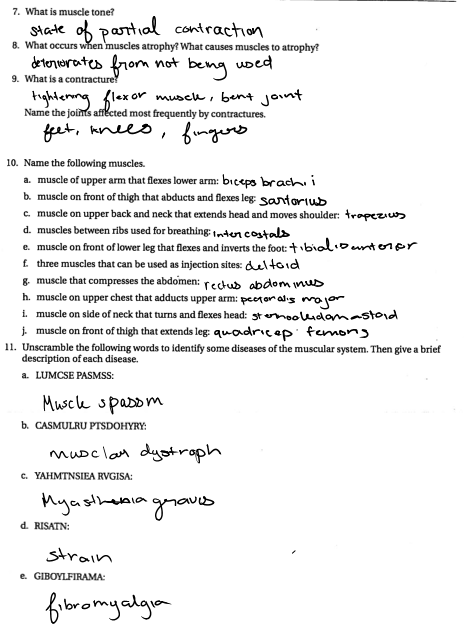 7. What is muscle tone?
state of partial contraction
8. What occurs when muscles atrophy? What causes muscles to atrophy?
deteriorates from not being used
9. What is a contracture?
tightening flexor muscle, bent joint
Name the joints affected most frequently by contractures.
feet, knees, fingers
10. Name the following muscles.
a. muscle of upper arm that flexes lower arm: biceps brachi i
b. muscle on front of thigh that abducts and flexes leg: sartorius
c. muscle on upper back and neck that extends head and moves shoulder: trapezius
d. muscles between ribs used for breathing: intercostals
e. muscle on front of lower leg that flexes and inverts the foot: tibialis anterior
f. three muscles that can be used as injection sites: deltoid
g. muscle that compresses the abdomen: rectus abdominus
h. muscle on upper chest that adducts upper arm: pectoralis major
i. muscle on side of neck that turns and flexes head: sternocleidomastoid
j. muscle on front of thigh that extends leg: quadricep femoris
11. Unscramble the following words to identify some diseases of the muscular system. Then give a brief
description of each disease.
a. LUMCSE PASMSS:
Muscle spasom
b. CASMULRU PTSDOHYRY:
musclar dystroph
c. YAHMTNSIEA RVGISA:
Myasthenia graves
d. RISATN:
strain
e. GIBOYLFIRAMA:
fibromyalgia